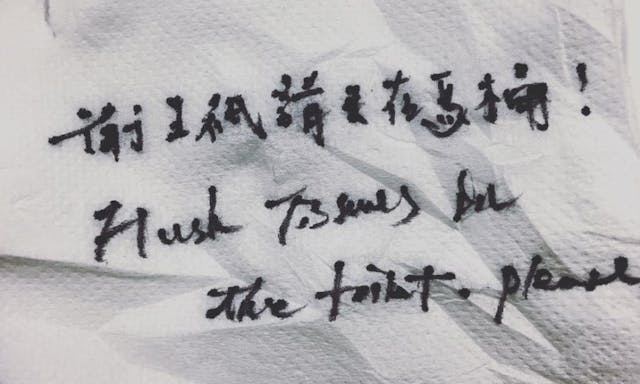 衛生紙請丟在馬桶!
Flush Tissues in
the toilet. please